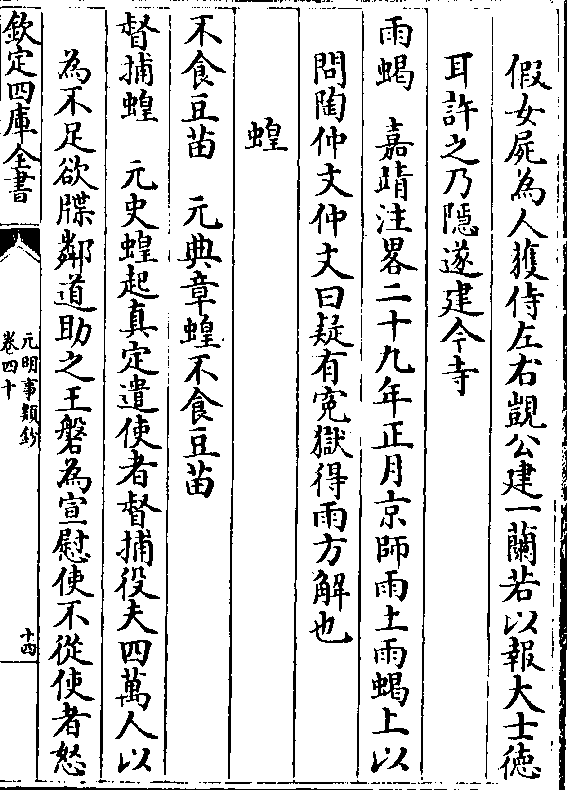 假女屍為人獲侍左右覬公建一蘭若以報大士徳
耳許之乃隱遂建今寺
雨蝎　嘉靖注畧二十九年正月京師雨土雨蝎上以
問陶仲文仲文曰疑有寃獄得雨方解也
蝗
不食豆苗　元典章蝗不食豆苗
督捕蝗　元史蝗起真定遣使者督捕役夫四萬人以
為不足欲牒鄰道助之王磐為宣慰使不從使者怒
欽定四庫全書
元明事類鈔
卷四十
十四